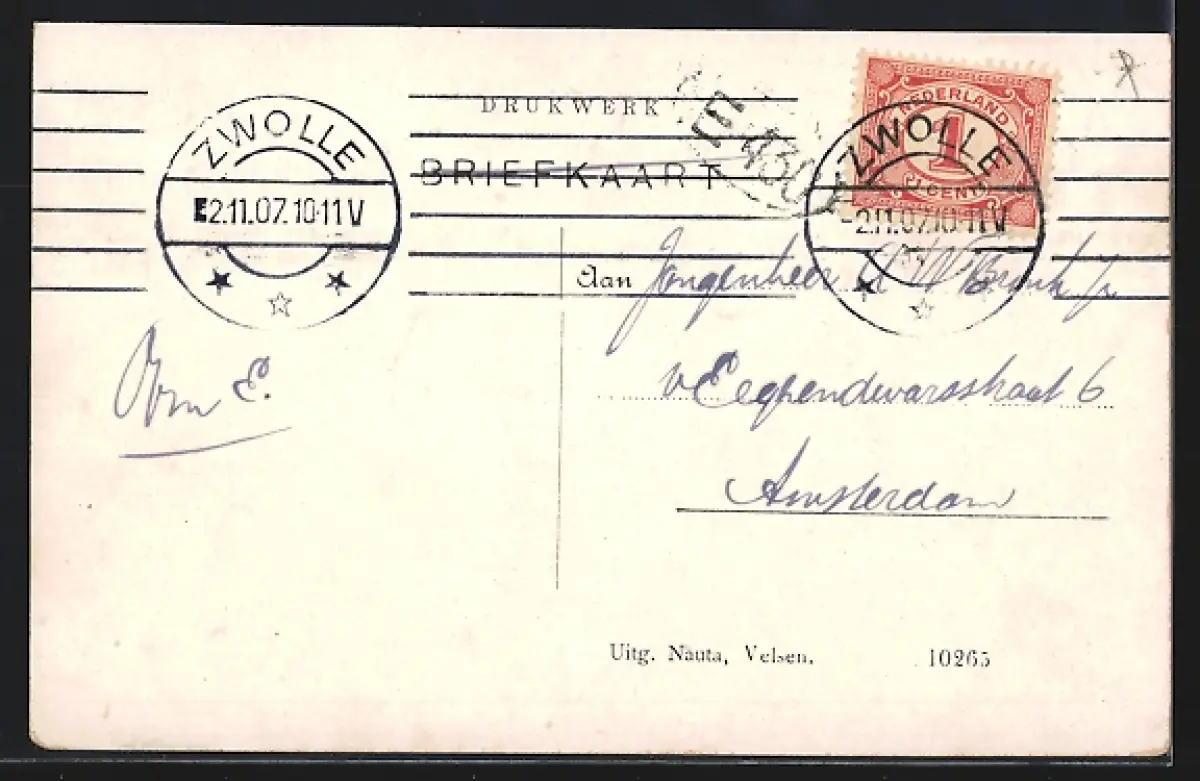 DRUKWERK
BRIEFKAART
ZWOLLE
2.11.07. 10-11 V
NEDERLAND
1
1 CENT
ZWOLLE
-2.11.07. 10-11 V
430
Aan Jongenheer
v Eeghendwarsstraat 6
Amsterdam
Oom E.
Uitg. Nauta, Velsen.
10265